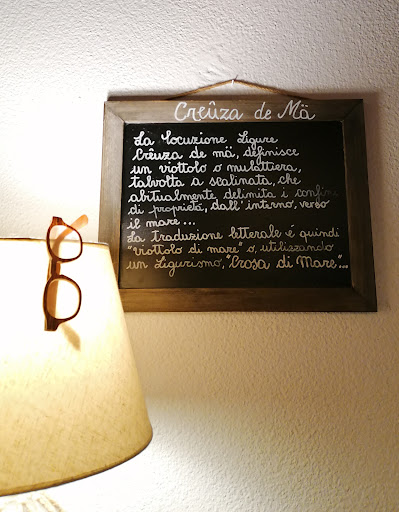 Creûza de Mä
La locuzione ligure
Crêuza de mä, definisce
un viottolo o mulattiera,
talvolta a scalinata, che
abitualmente delimita i confini
di proprietà, dall'interno, verso
il mare...
La traduzione letterale è quindi
"viottolo di mare" o, utilizzando
un ligurismo, "Crosa di Mare"...